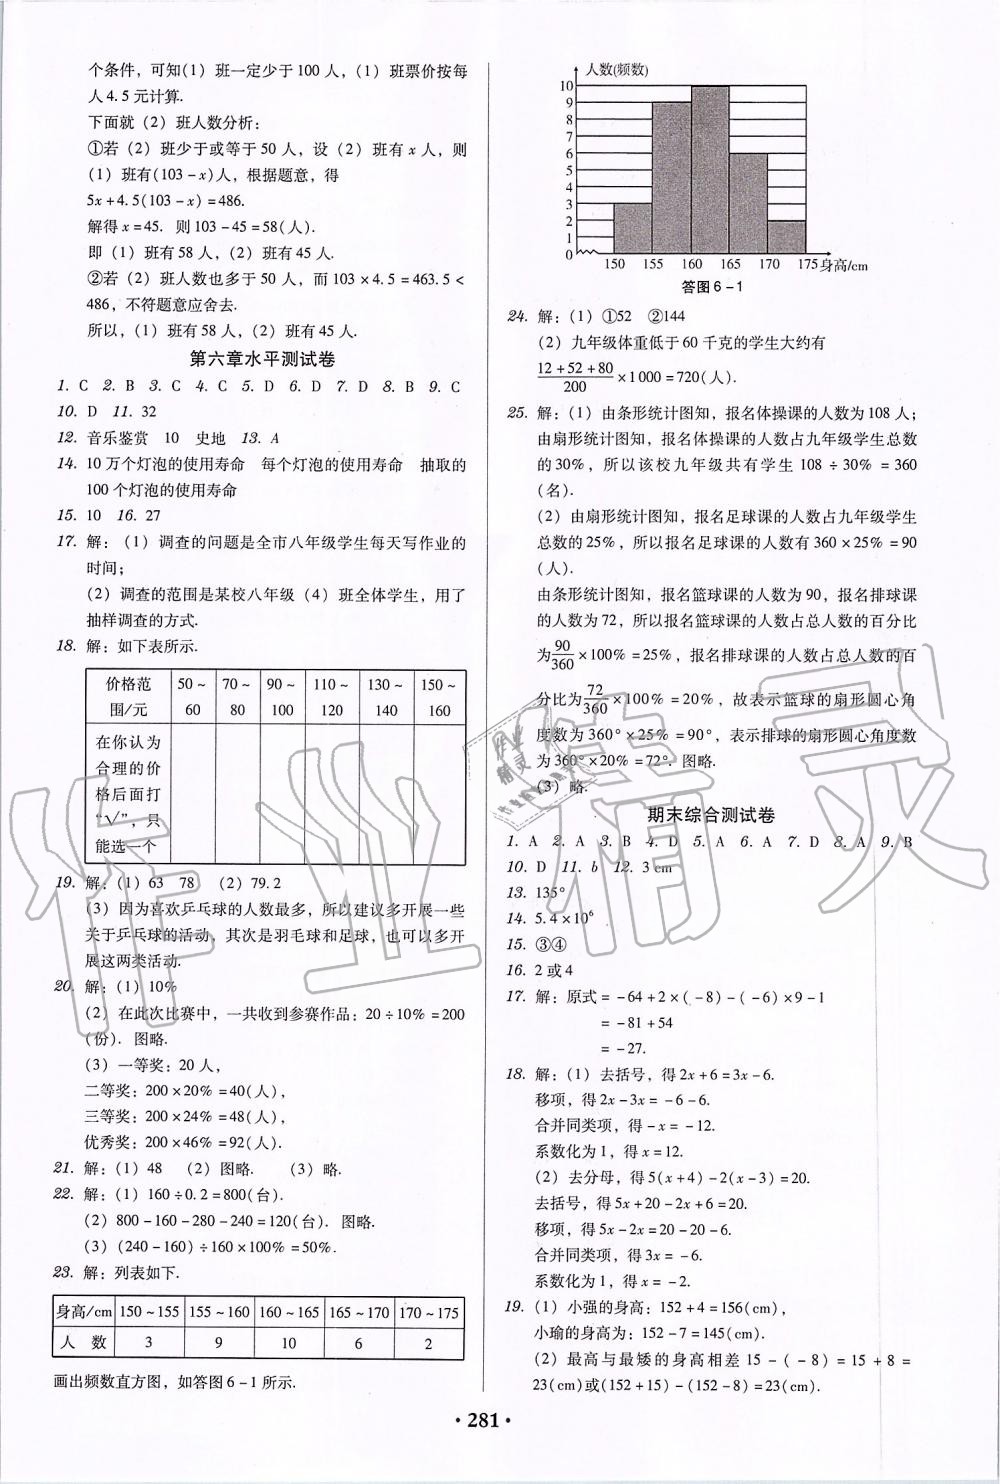 个条件，可知(1)班一定少于100人，(1)班票价按每
人4.5元计算.
下面就(2)班人数分析：
①若(2)班少于或等于50人，设(2)班有x人，则
(1)班有(103－x)人，根据题意，得
5x＋4.5(103－x)＝486.
解得x＝45. 则103－45＝58(人).
即(1)班有58人，(2)班有45人.
②若(2)班人数也多于50人，而103×4.5＝463.5＜
486，不符题意应舍去.
所以，(1)班有58人，(2)班有45人.
第六章水平测试卷
1. C 2. B 3. C 4. C 5. D 6. D 7. D 8. B 9. C
10. D 11. 32
12. 音乐鉴赏 10 史地 13. A
14. 10万个灯泡的使用寿命 每个灯泡的使用寿命 抽取的
100个灯泡的使用寿命
15. 10 16. 27
17. 解：(1)调查的问题是全市八年级学生每天写作业的
时间；
(2)调查的范围是某校八年级(4)班全体学生，用了
抽样调查的方式.
18. 解：如下表所示.
价格范 50～ 70～ 90～ 110～ 130～ 150～
围/元 60 80 100 120 140 160
在你认为
合理的价
格后面打
“√”，只
能选一个
19. 解：(1)63 78 (2)79.2
(3)因为喜欢乒乓球的人数最多，所以建议多开展一些
关于乒乓球的活动，其次是羽毛球和足球，也可以多开
展这两类活动.
20. 解：(1)10%
(2)在此次比赛中，一共收到参赛作品：20÷10%＝200
(份). 图略.
(3)一等奖：20人，
二等奖：200×20%＝40(人)，
三等奖：200×24%＝48(人)，
优秀奖：200×46%＝92(人).
21. 解：(1)48 (2)图略. (3)略.
22. 解：(1)160÷0.2＝800(台).
(2)800－160－280－240＝120(台). 图略.
(3)(240－160)÷160×100%＝50%.
23. 解：列表如下.
身高/cm 150～155 155～160 160～165 165～170 170～175
人 数 3 9 10 6 2
画出频数直方图，如答图6－1所示.
人数(频数)
10
9
8
7
6
5
4
3
2
1
0
150 155 160 165 170 175 身高/cm
答图6－1
24. 解：(1)①52 ②144
(2)九年级体重低于60千克的学生大约有
(12＋52＋80)/200×1000＝720(人).
25. 解：(1)由条形统计图知，报名体操课的人数为108人；
由扇形统计图知，报名体操课的人数占九年级学生总数
的30%，所以该校九年级共有学生108÷30%＝360
(名).
(2)由扇形统计图知，报名足球课的人数占九年级学生
总数的25%，所以报名足球课的人数有360×25%＝90
(人).
由条形统计图知，报名篮球课的人数为90，报名排球课
的人数为72，所以报名篮球课的人数占总人数的百分比
为90/360×100%＝25%，报名排球课的人数占总人数的百
分比为72/360×100%＝20%，故表示篮球的扇形圆心角
度数为360°×25%＝90°，表示排球的扇形圆心角度数
为360°×20%＝72°. 图略.
(3)略.
期末综合测试卷
1. A 2. A 3. B 4. D 5. A 6. A 7. D 8. A 9. B
10. D 11. b 12. 3 cm
13. 135°
14. 5.4×10⁶
15. ③④
16. 2或4
17. 解：原式＝－64＋2×(－8)－(－6)×9－1
＝－81＋54
＝－27.
18. 解：(1)去括号，得2x＋6＝3x－6.
移项，得2x－3x＝－6－6.
合并同类项，得－x＝－12.
系数化为1，得x＝12.
(2)去分母，得5(x＋4)－2(x－3)＝20.
去括号，得5x＋20－2x＋6＝20.
移项，得5x－2x＝20－20－6.
合并同类项，得3x＝－6.
系数化为1，得x＝－2.
19. (1)小强的身高：152＋4＝156(cm)，
小瑜的身高为：152－7＝145(cm).
(2)最高与最矮的身高相差15－(－8)＝15＋8＝
23(cm)或(152＋15)－(152－8)＝23(cm).
·281·
作业精灵